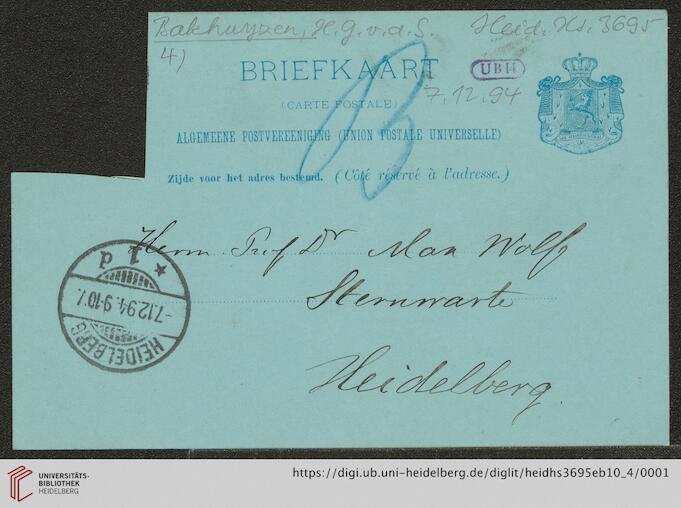 Bakhuyzen, H. G. v. d. S. Heid. Hs. 3695
4)
BRIEFKAART
UBH
7.12.94
(CARTE POSTALE)
B
ALGEMEENE POSTVEREENIGING (UNION POSTALE UNIVERSELLE)
Zijde voor het adres bestemd. (Côté réservé à l'adresse.)
Herrn Prof Dr Max Wolf
Sternwarte
Heidelberg.
HEIDELBERG
-7.12.94. 9-10 V.
* 1 d
UNIVERSITÄTS-
BIBLIOTHEK
HEIDELBERG
https://digi.ub.uni-heidelberg.de/diglit/heidhs3695eb10_4/0001